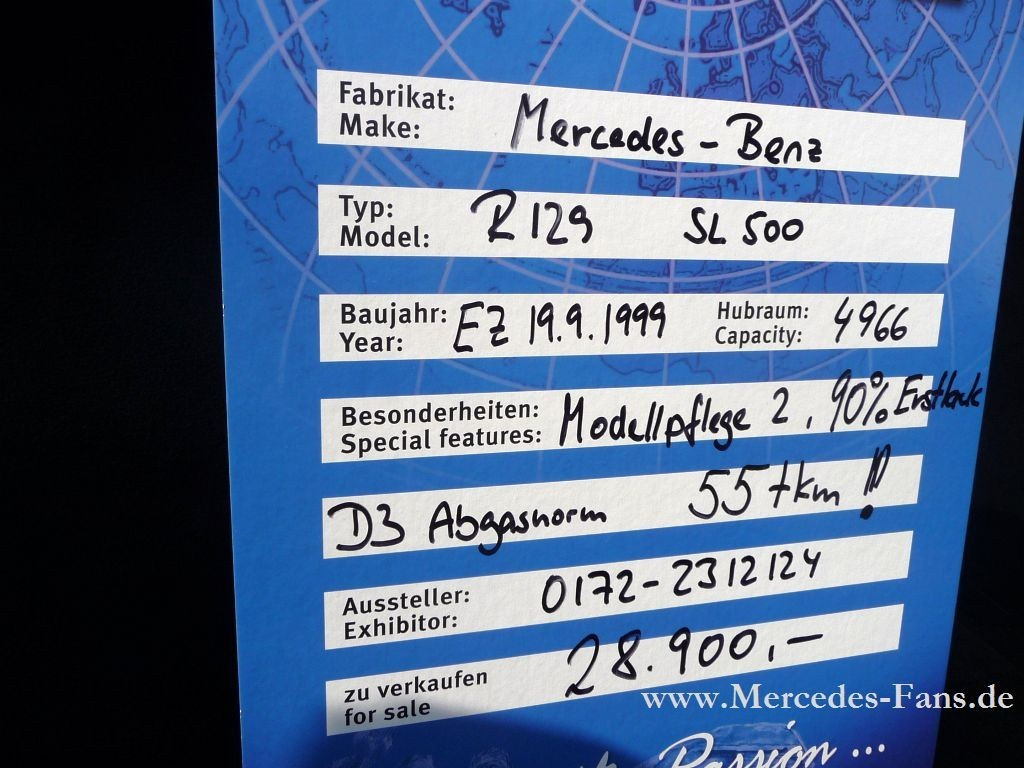 Fabrikat:
Make: Mercedes-Benz
Typ:
Model: R129 SL 500
Baujahr: EZ 19.9.1999 Hubraum: 4966
Year: Capacity:
Besonderheiten:
Special features: Modellpflege 2, 90% Erstlack
D3 Abgasnorm 55 tkm !!
Aussteller: 0172-2312124
Exhibitor:
zu verkaufen 28.900,-
for sale
www.Mercedes-Fans.de
Passion ...